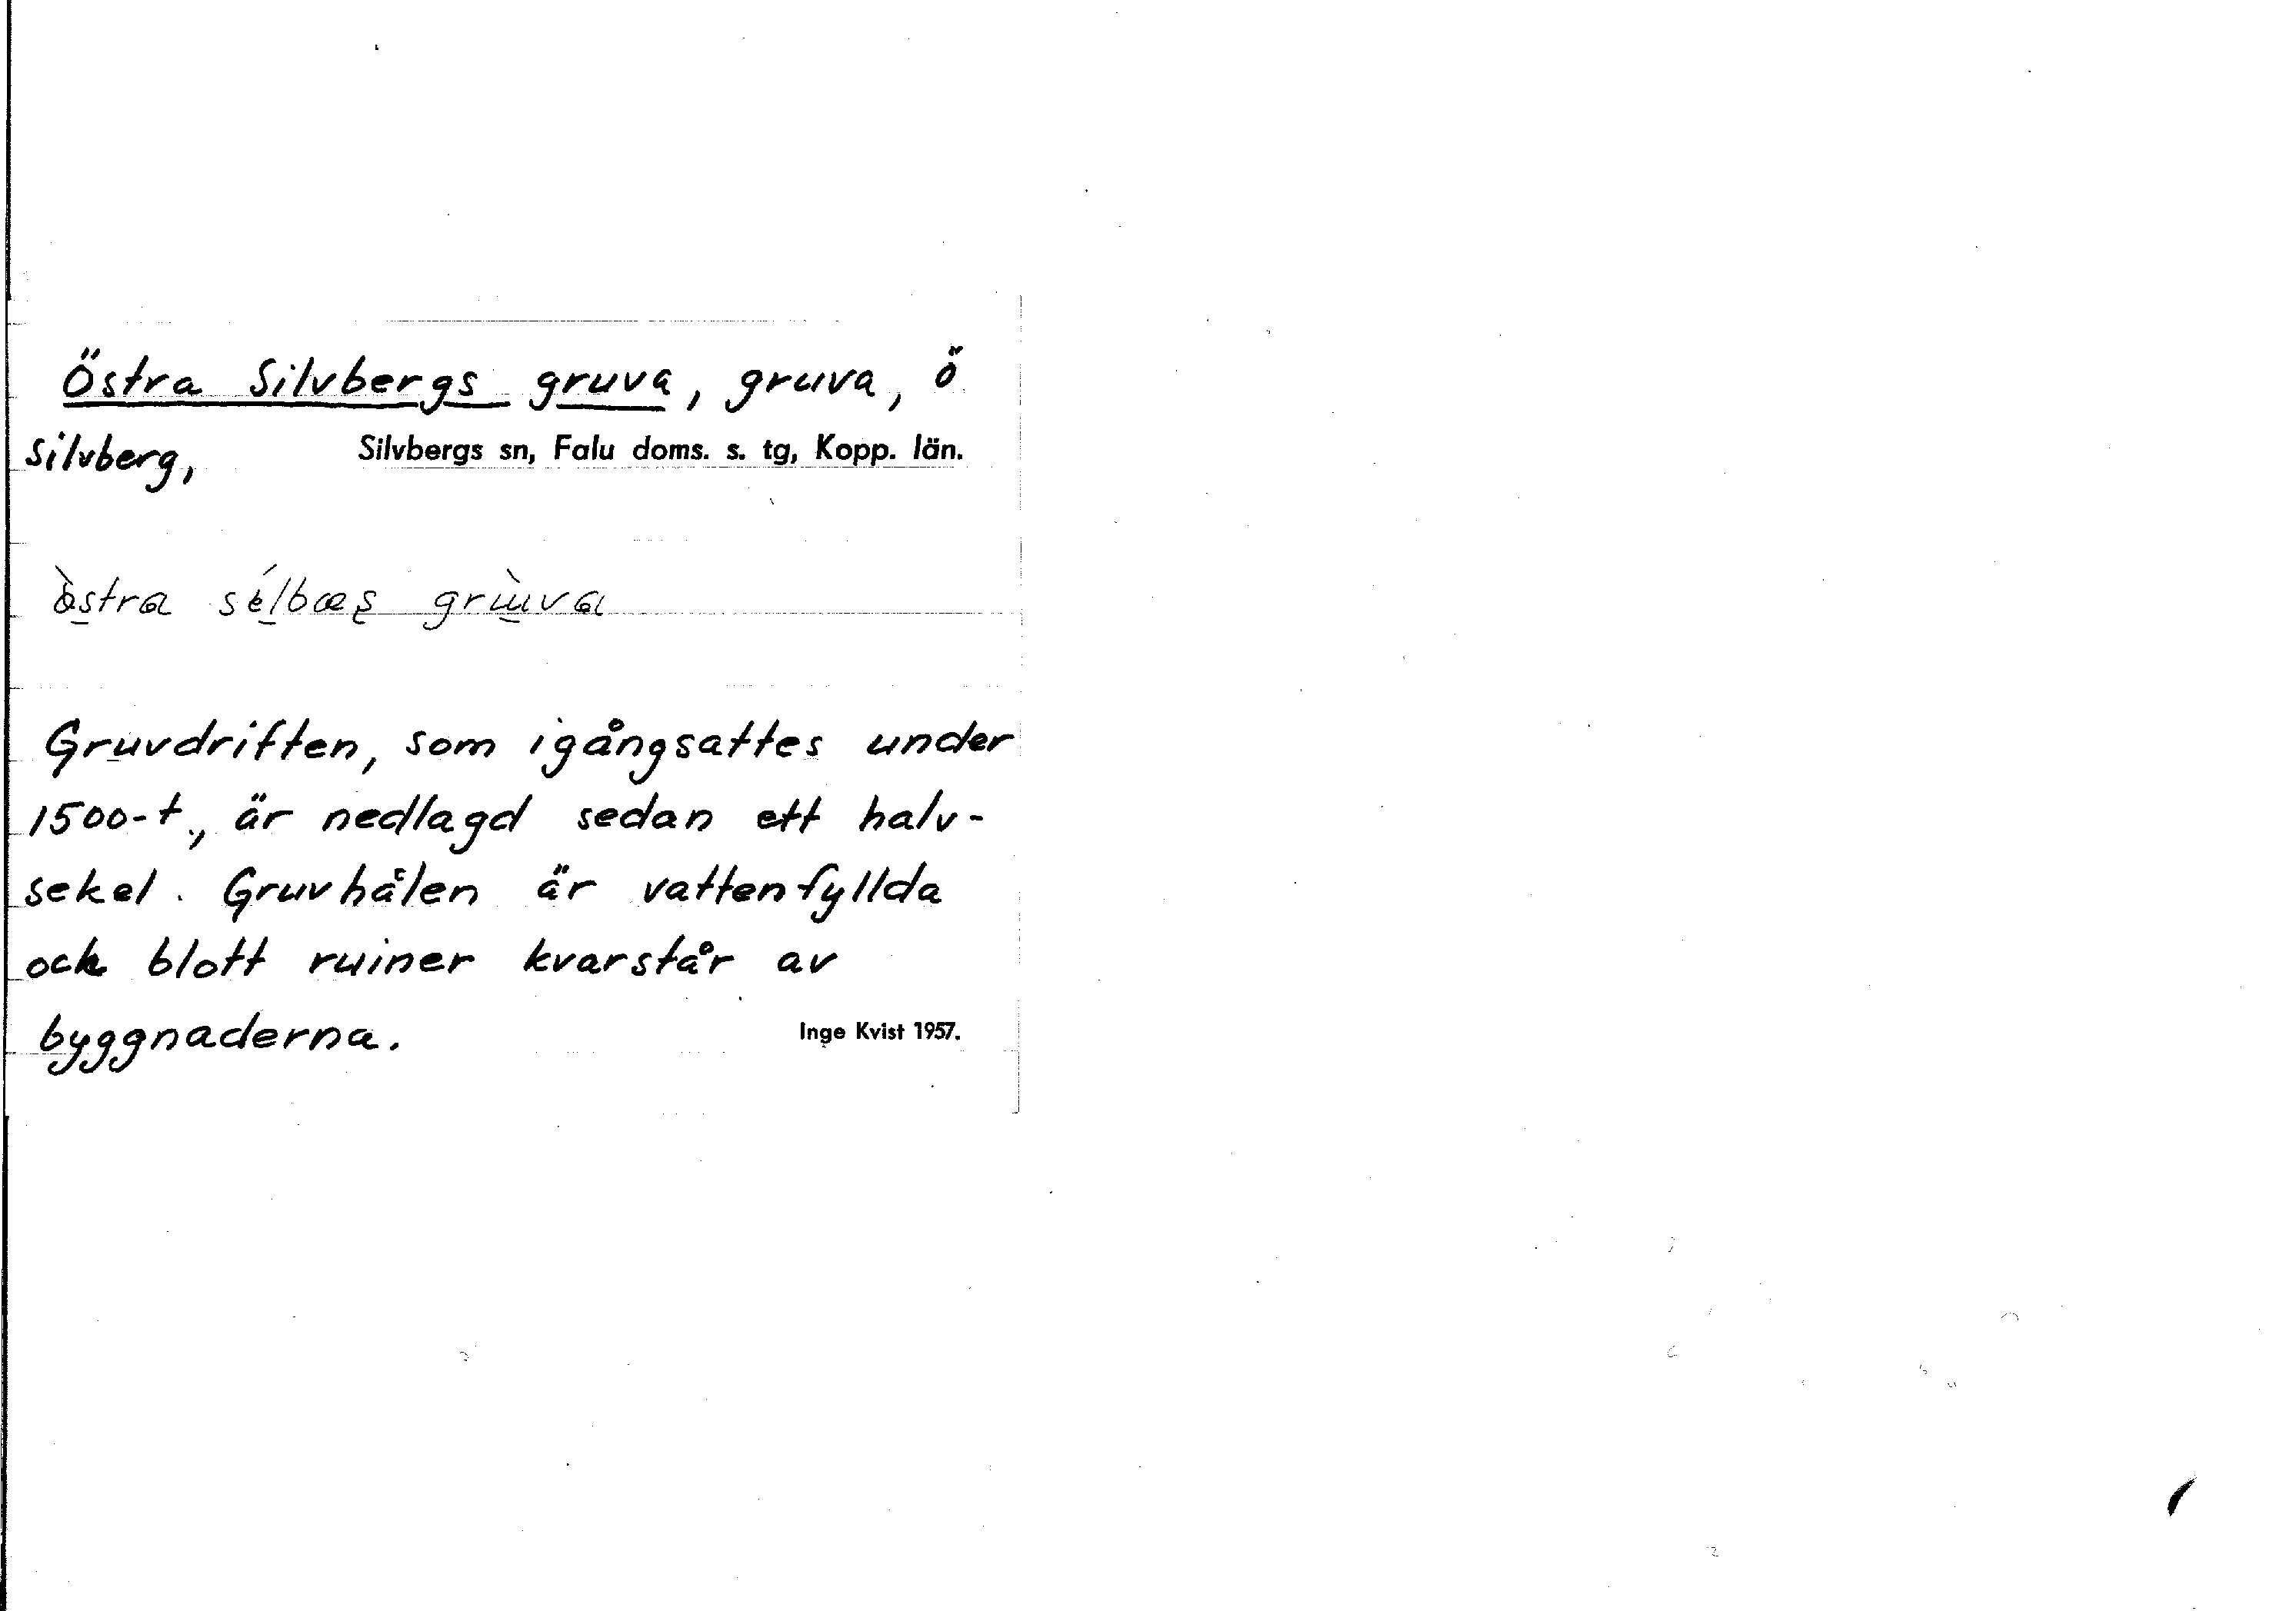 Östra Silvbergs gruva, gruva, ö
Silvberg, Silvbergs sn, Falu doms. s. tg, Kopp. län.
östra sélbæs grùva
Gruvdriften, som igångsattes under
1500-t., är nedlagd sedan ett halv-
sekel. Gruvhålen är vattenfyllda
och blott ruiner kvarstår av
byggnaderna. Inge Kvist 1957.